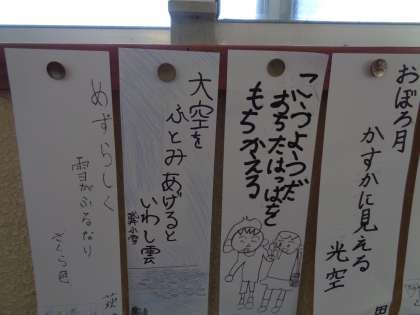 おぼろ月
かすかに見える
光空
こうようだ
おちたはっぱを
もちかえる
大空を
ふとみあげると
いわし雲
めずらしく
雪がふるなり
さくら色